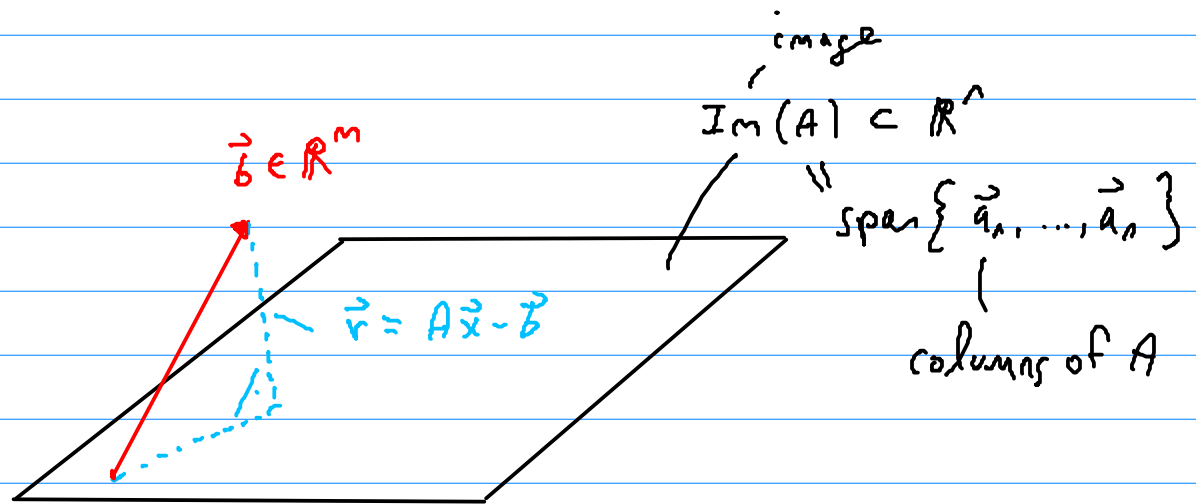 image
Im(A) ⊂ ℝⁿ
b⃗ ∈ ℝᵐ
||
span{a⃗₁, ..., a⃗ₙ}
r⃗ = Ax⃗ - b⃗
columns of A